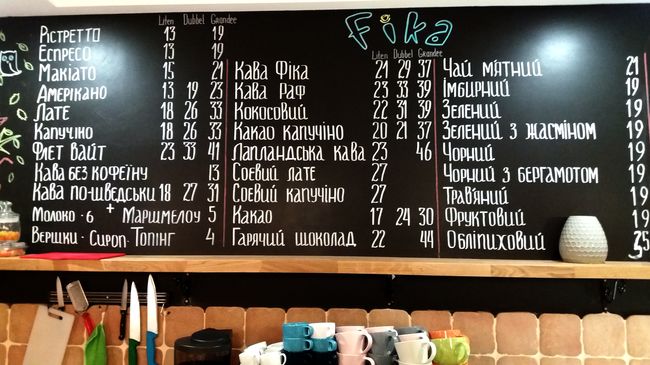 Liten Dubbel Grandee
Рістретто 13 19
Еспресо 13 19
Макіато 15 21
Амерікано 13 19 23
Лате 18 26 33
Капучіно 18 26 33
Флет вайт 23 33 41
Кава без кофеїну 13
Кава по-шведськи 18 27 31
Молоко · 6 + Маришмелоу 5
Вершки · Сироп · Топінг 4
Fika
Liten Dubbel Grandee
Кава Фіка 21 29 37
Кава Раф 23 33 39
Кокосовий 22 31 39
Какао капучіно 20 21 37
Лапландська кава 23 46
Соєвий лате 27
Соєвий капучіно 27
Какао 17 24 30
Гарячий шоколад 22 44
Чай м'ятний 21
Імбирний 19
Зелений 19
Зелений з жасміном 19
Чорний 19
Чорний з бергамотом 19
Трав'яний 19
Фруктовий 19
Обліпиховий 35